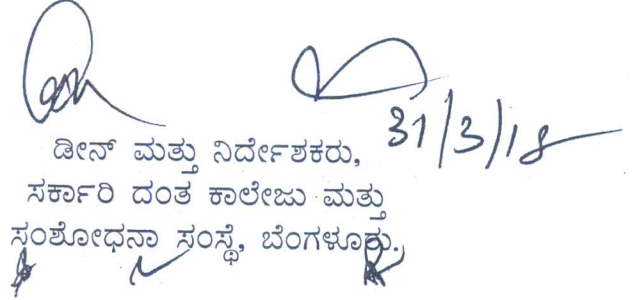 31/3/18
ಡೀನ್ ಮತ್ತು ನಿರ್ದೇಶಕರು,
ಸರ್ಕಾರಿ ದಂತ ಕಾಲೇಜು ಮತ್ತು
ಸಂಶೋಧನಾ ಸಂಸ್ಥೆ, ಬೆಂಗಳೂರು.